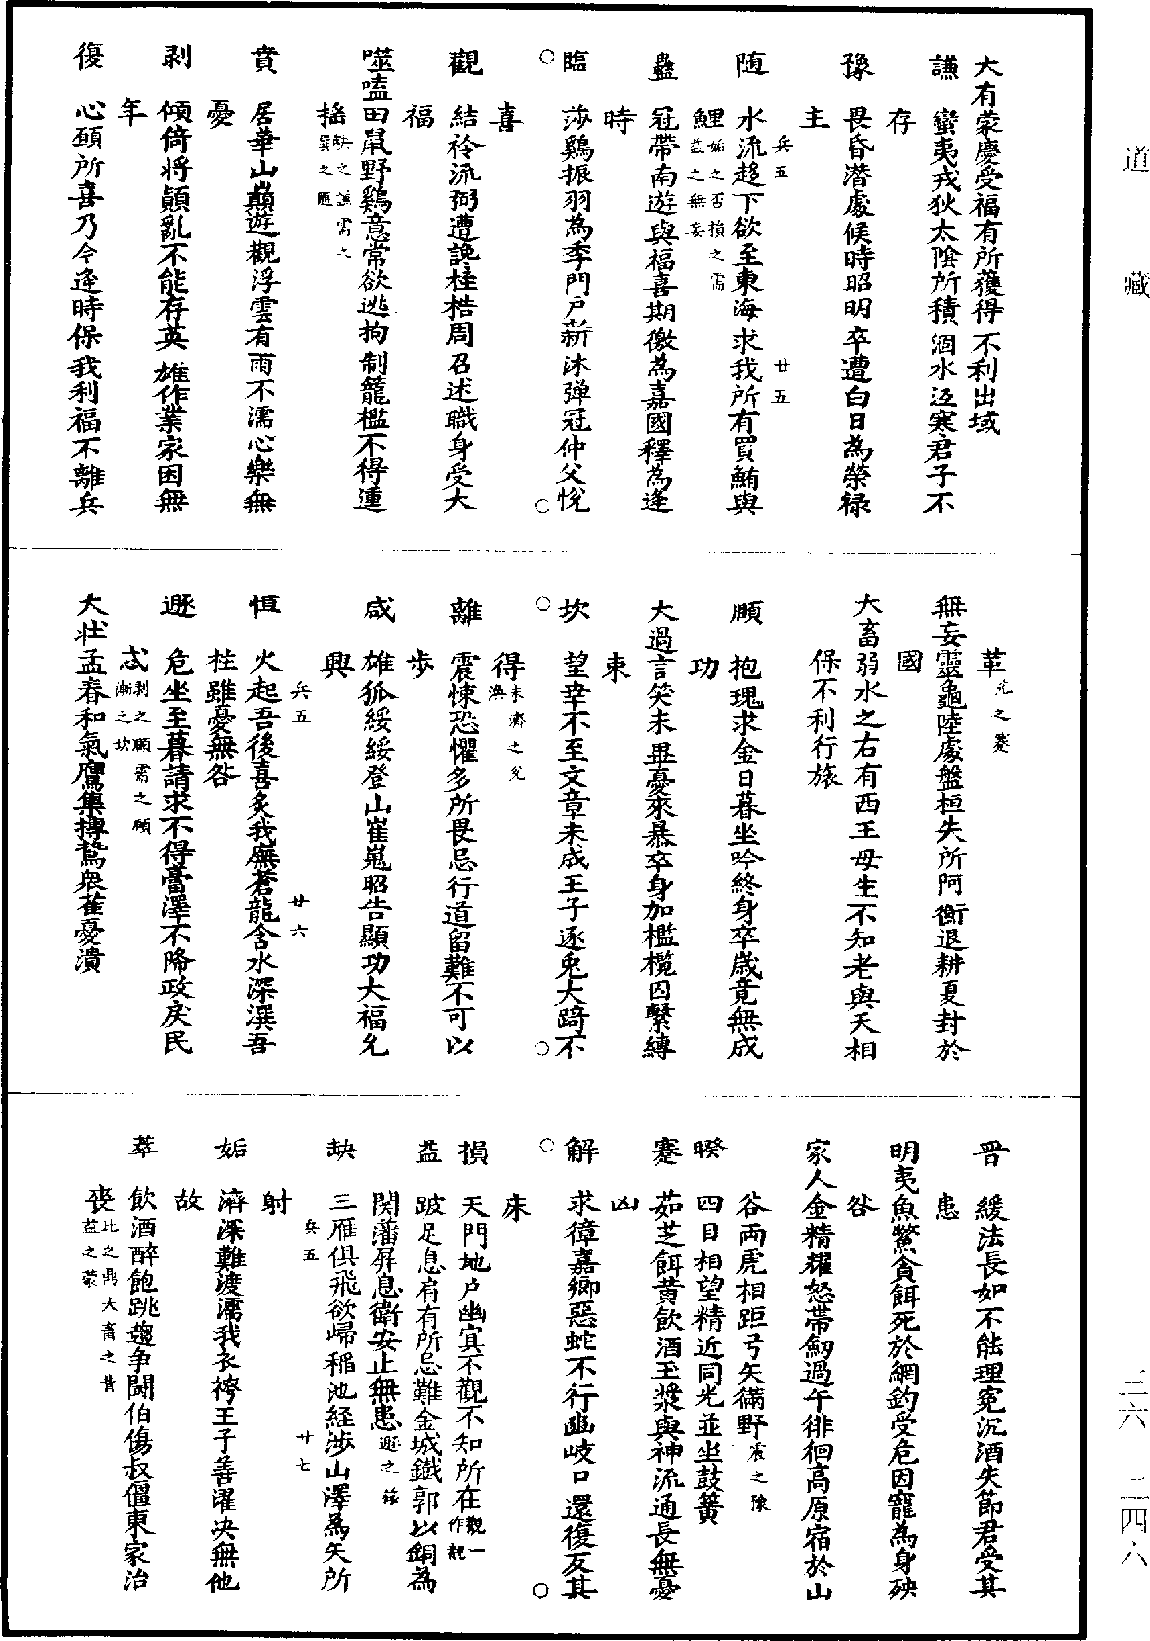 道藏
三六 二四八
大有蒙慶受福有所獲得不利出域
謙 蠻夷戎狄太陰所積涸水冱寒君子不
存
豫 畏昏潛處候時昭明卒遭白日為榮祿
主
兵五 廿五
隨 水流趍下欲至東海求我所有買鮪與
鯉姤之否損之需益之無妄
蠱 冠帶南遊與福喜期徼為嘉國釋為逢
時
臨 莎鷄振羽為季門戶新沐彈冠仲父悅
喜
觀 結衿流粥遭讒桎梏周召述職身受大
福
噬嗑田鼠野鷄意常欲逃拘制籠檻不得運
搖
賁 居華山巔遊觀浮雲有雨不濡心樂無
憂
剥 傾倚將顛亂不能存英雄作業家困無
年
復 心願所喜乃今逢時保我利福不離兵
革
無妄靈龜陸處盤桓失所阿衡退耕夏封於
國
大畜弱水之右有西王母生不知老與天相
保不利行旅
頤 抱瑰求金日暮坐吟終身卒歲竟無成
功
大過言笑未畢憂來暴卒身加檻欖囚繫縛
束
坎 望幸不至文章未成王子逐兎大踦不
得未濟之兌
離 震悚恐懼多所畏忌行道留難不可以
步
咸 雄狐綏綏登山崔嵬昭告顯功大福允
興
兵五 廿六
恒 火起吾後喜炙我廡蒼龍含水深溪吾
柱雖憂無咎
遯 危坐至暮請求不得膏澤不降政戾民
忒剥之頤需之頤漸之坎
大壯孟春和氣鷹隼搏鷙衆雀憂潰
晉 緩法長奴不能理寃沉酒失節君受其
患
明夷魚鱉貪餌死於網釣受危因寵為身殃
咎
家人金精耀怒帶劒過午徘徊高原宿於山
谷兩虎相距弓矢滿野
暌 四目相望精近同光並坐鼓簧
蹇 茹芝餌黄飲酒玉漿與神流通長無憂
凶
解 求獐嘉鄉惡蛇不行幽岐口還復反其
床
損 天門地戶幽冥不觀不知所在觀一作覩
益 跛足息肩有所忌難金城鐵郭以銅為
関藩屏息衛安止無患
兵五 廿七
缺 三雁俱飛欲歸稻池經涉山澤為矢所
射
姤 濟深難渡濡我衣袴王子善濯決無他
故
萃 飲酒醉飽跳趨争鬪伯傷叔僵東家治
喪比之鼎大畜之賁益之蒙